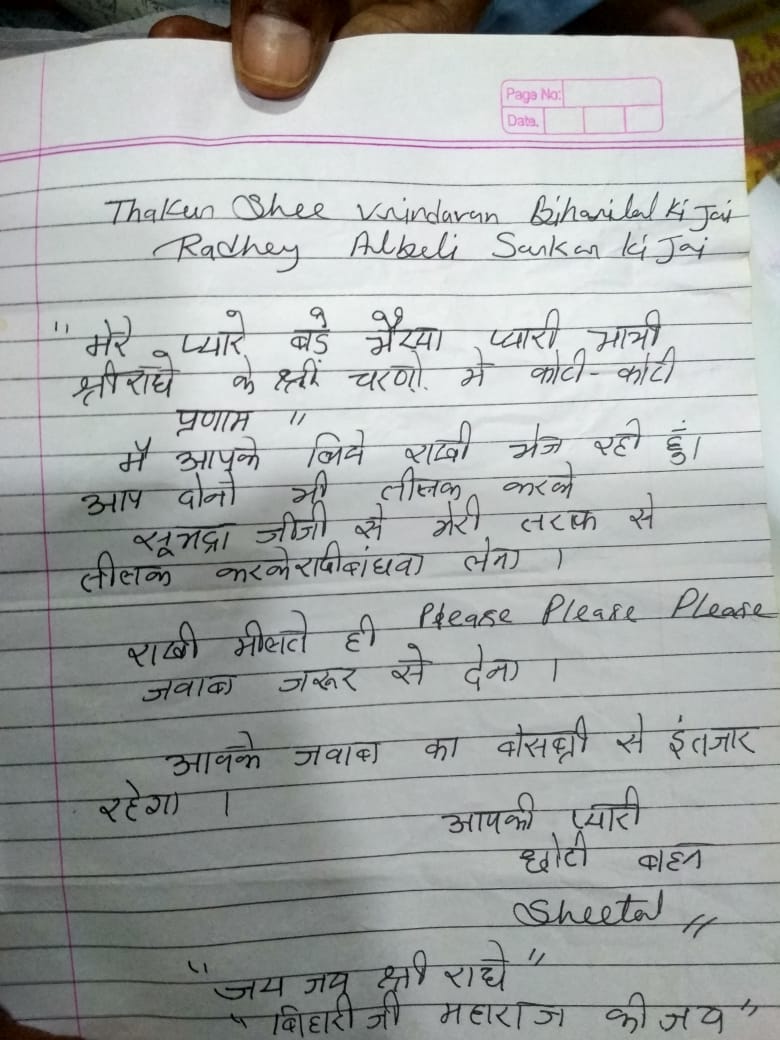 Page No:
Date.
Thakur Shee Vrindavan Biharilal ki Jai
Radhey Albeli Sarkar ki Jai
" मेरे प्यारे बड़े भैय्या प्यारी भाभी
श्री राधे के श्रीं चरणों में कोटी-कोटी
प्रणाम "
मै आपके लिये राखी भेज रही हुं।
आप दोनो भी तीलक करके
सूभद्रा जीजी से मेरी तरफ से
तीलक करके राखी बांधवा लेना ।
राखी मीलते ही Please Please Please
जवाब जरूर से देना ।
आपके जवाब का बेसब्री से इंतजार
रहेगा ।
आपकी प्यारी
छोटी बहन
Sheetal "
" जय जय श्री राधे "
" बिहारी जी महाराज की जय "